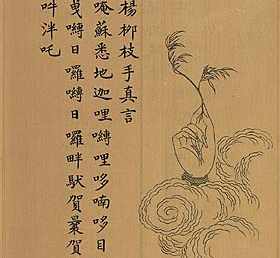 楊柳枝手真言
唵蘇悉地迦哩嚩哩哆喃哆目
曳嚩日囉嚩日囉畔馱賀曩賀
吽泮吒